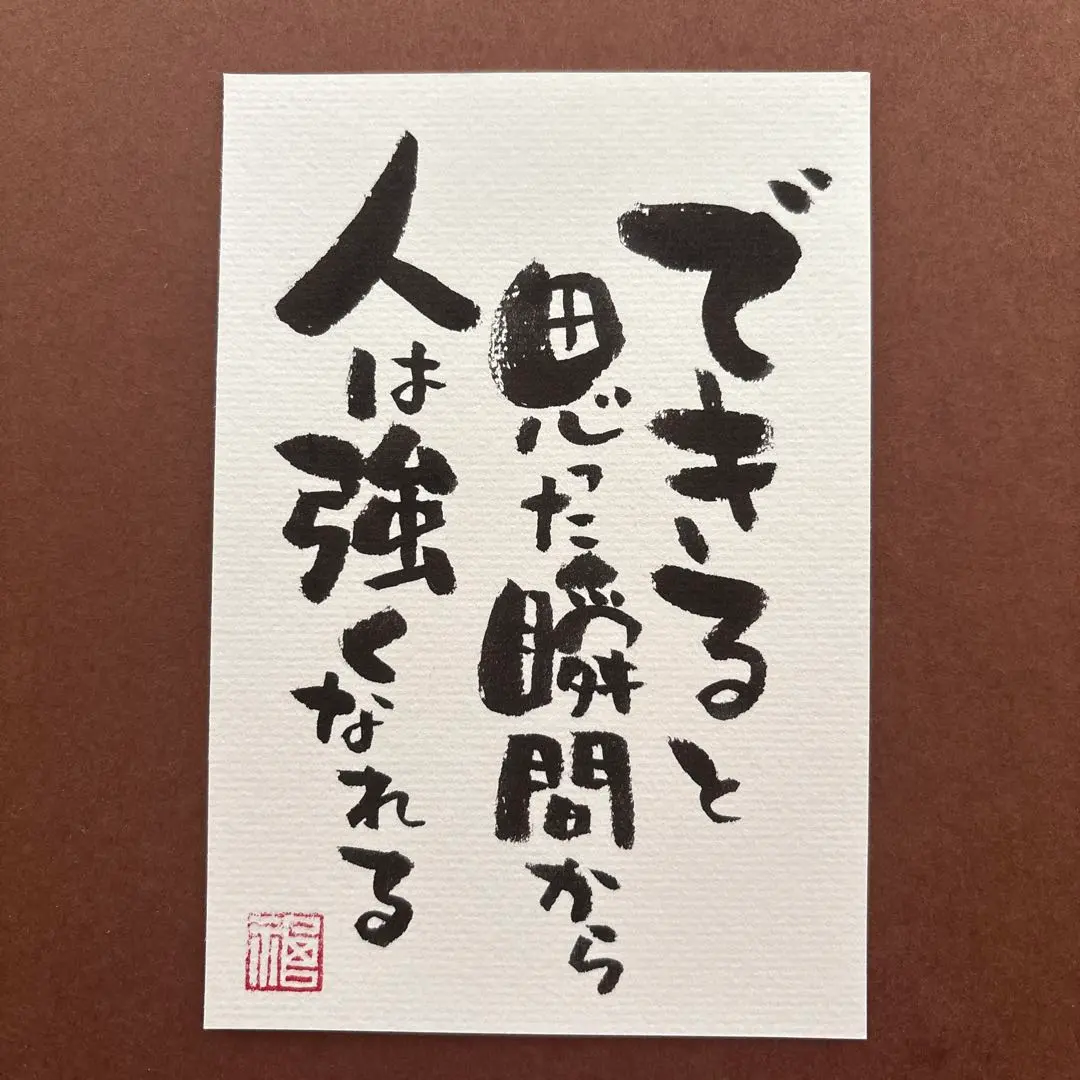 できると
思った瞬間から
人は強くなれる